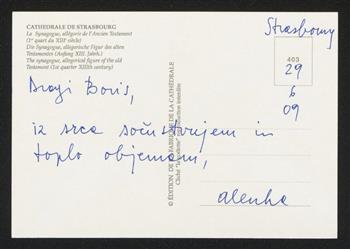 CATHEDRALE DE STRASBOURG
La Synagogue, allégorie de l'Ancien Testament
(1er quart du XIIIe siècle)
Die Synagoge, allegorische Figur des alten
Testamentes (Anfang XIII. Jahrh.)
The synagogue, allegorical figure of the old
Testament (1st quarter XIIIth century)
Strasbourg
403
29
6
09
Dragi Boris,
iz srca sočustvujem in
toplo objemam,
alenka
© ÉDITION DE LA FABRIQUE DE LA CATHÉDRALE